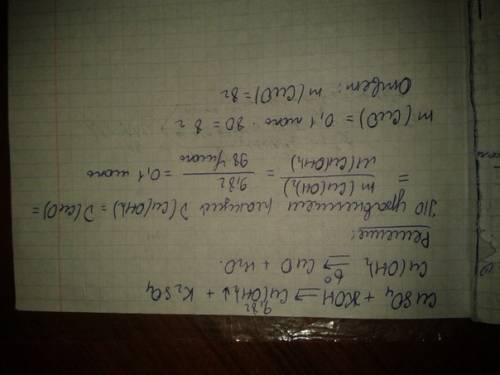 CuSO₄ + KOH → Cu(OH)₂↓ + K₂SO₄
9,8г
Cu(OH)₂ →t° CuO + H₂O.
Решение:
По уравнениям реакций ν(Cu(OH)₂) = ν(CuO) =
= m(Cu(OH)₂) / M(Cu(OH)₂) = 9,8г / 98 г/моль = 0,1 моль
m(CuO) = 0,1 моль · 80 = 8 г
Ответ: m(CuO) = 8г